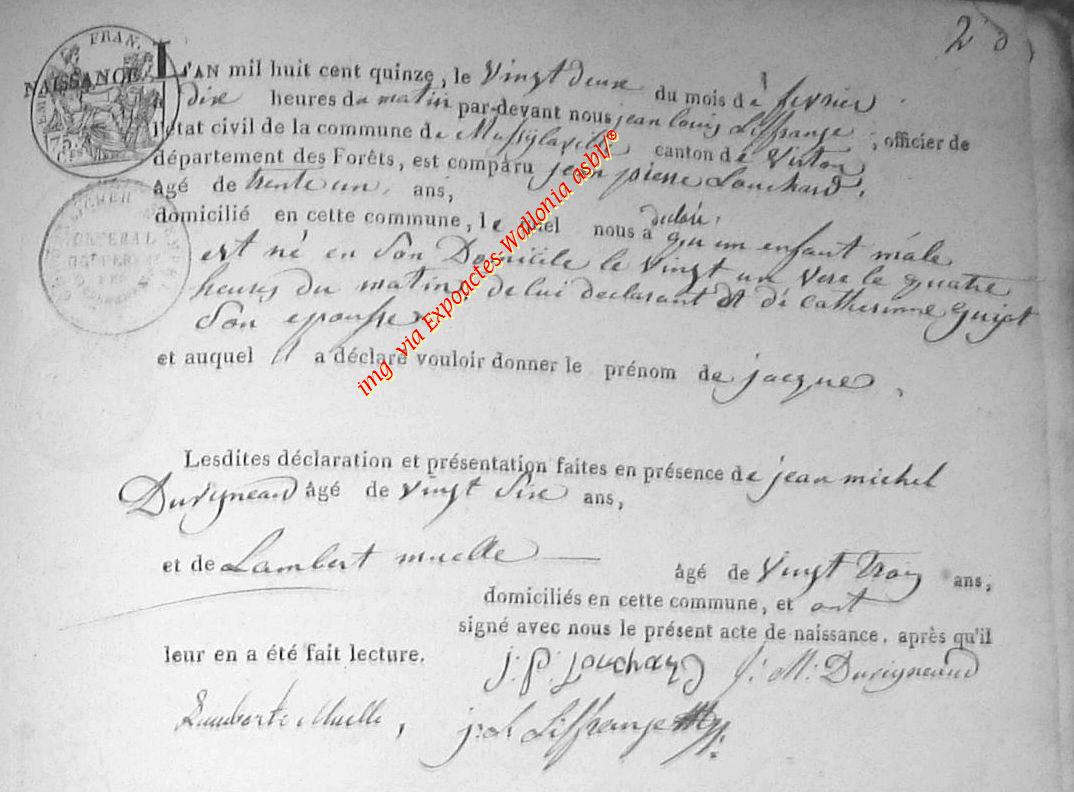 2
NAISSANCE
FRAN.
75.c
L'AN mil huit cent quinze, le vingt deux du mois de fevrier
à dix heures du matin par-devant nous jean louis Liffrange, officier de
l'état civil de la commune de Mussylaville canton de Virton
département des Forêts, est comparu jean pierre Louchard,
âgé de trente un, ans,
domicilié en cette commune, lequel nous a declaré,
qu'un enfant mâle
est né en Son Domicile le vingt un vers le quatre
heures du matin, de lui declarant et de Catherinne guiot
Son epousse
et auquel il a déclaré vouloir donner le prénom de jacque,
Lesdites déclaration et présentation faites en présence de jean michel
Duvigneaud âgé de vingt Six ans,
et de Lambert muelle âgé de vingt Trois ans,
domiciliés en cette commune, et ont
signé avec nous le présent acte de naissance, après qu'il
leur en a été fait lecture.
j: P: Louchard J: M: Duvigneaud
Lamberte Muelle, j: L Liffrange
img via Expoactes-Wallonia asbl®